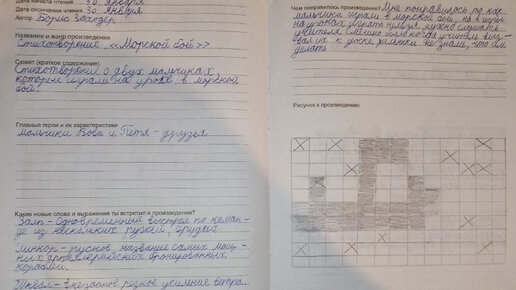 Дата начала чтения 30 января
Дата окончания чтения 30 января
Автор Борис Заходер
Название и жанр произведения
Стихотворение «Морской бой»
Сюжет (краткое содержание)
Стихотворение о двух мальчиках,
которые играли на уроке в морской
бой.
Главные герои и их характеристики
мальчики Вова и Петя - друзья
Какие новые слова и выражения ты встретил в произведении?
Залп - Одновременный выстрел по коман-
де из нескольких ружей, орудий
Линкор - русское название самых мощ-
ных артиллерийских бронированных
кораблей.
Шквал - внезапное резкое усиление ветра.
Чем понравилось произведение? Мне понравилось, то как
мальчики играли в морской бой, но
на уроках играть нельзя нужно слушать
учителя. Смешно было когда учитель выз-
вал их к доске мальчики не знали, что им
делать
Рисунок к произведению